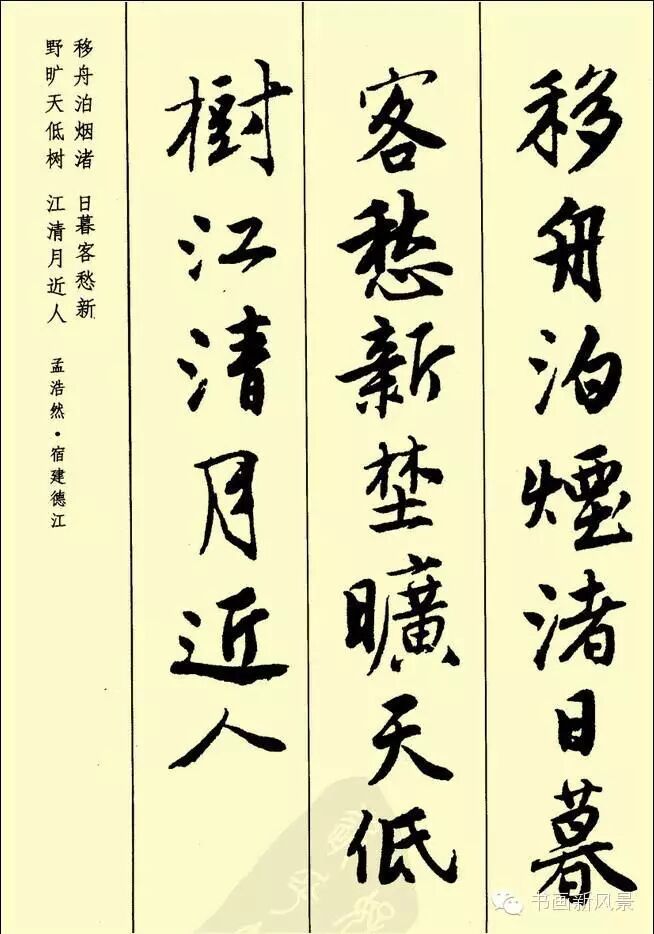 移舟泊煙渚日暮
客愁新埜曠天低
樹江清月近人
移舟泊烟渚 日暮客愁新
野旷天低树 江清月近人
孟浩然·宿建德江
书画新风景